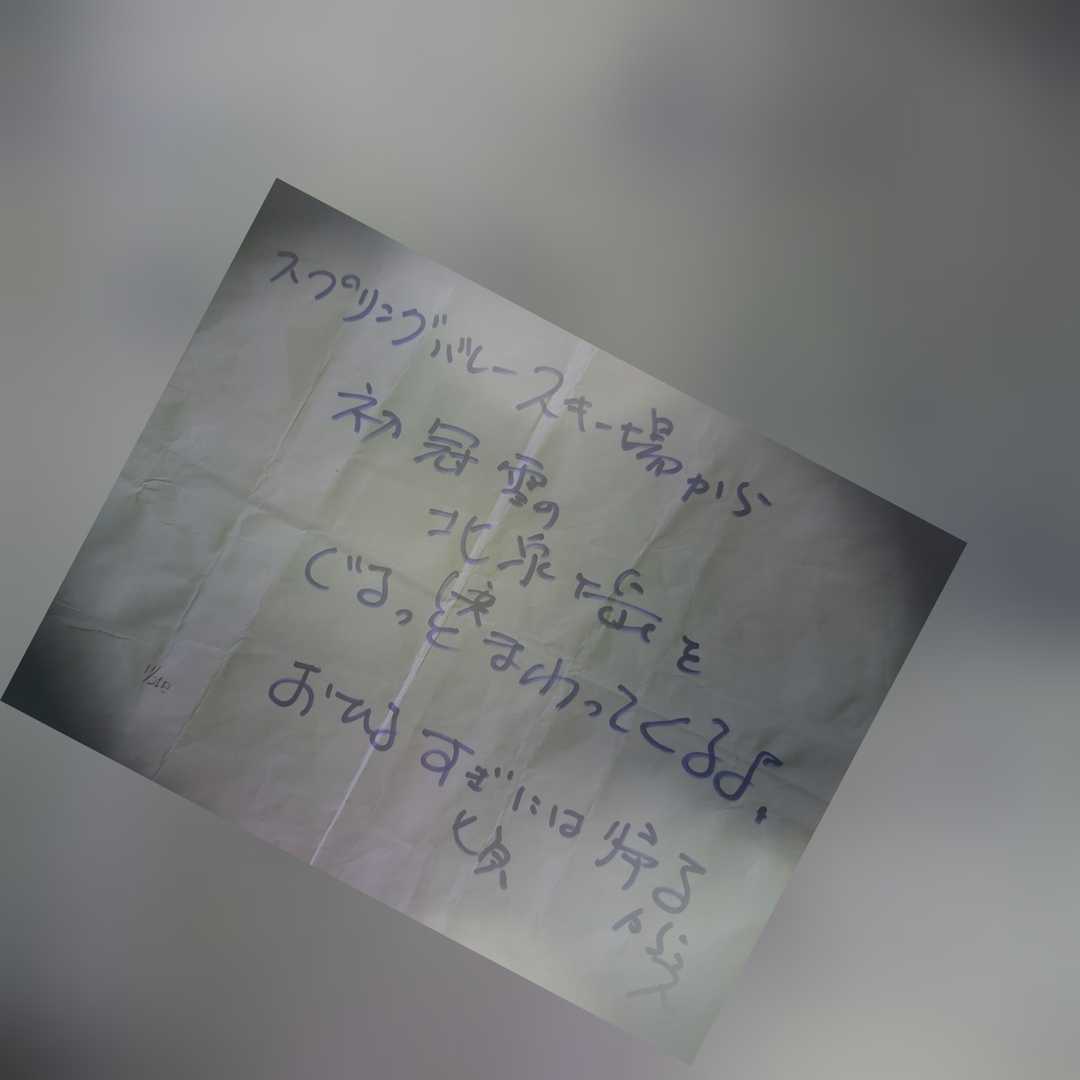 スプリングバレースキー場から
初冠雪の
北泉ヶ岳を
ぐるっとまわってくるよ.
おひるすぎには帰る